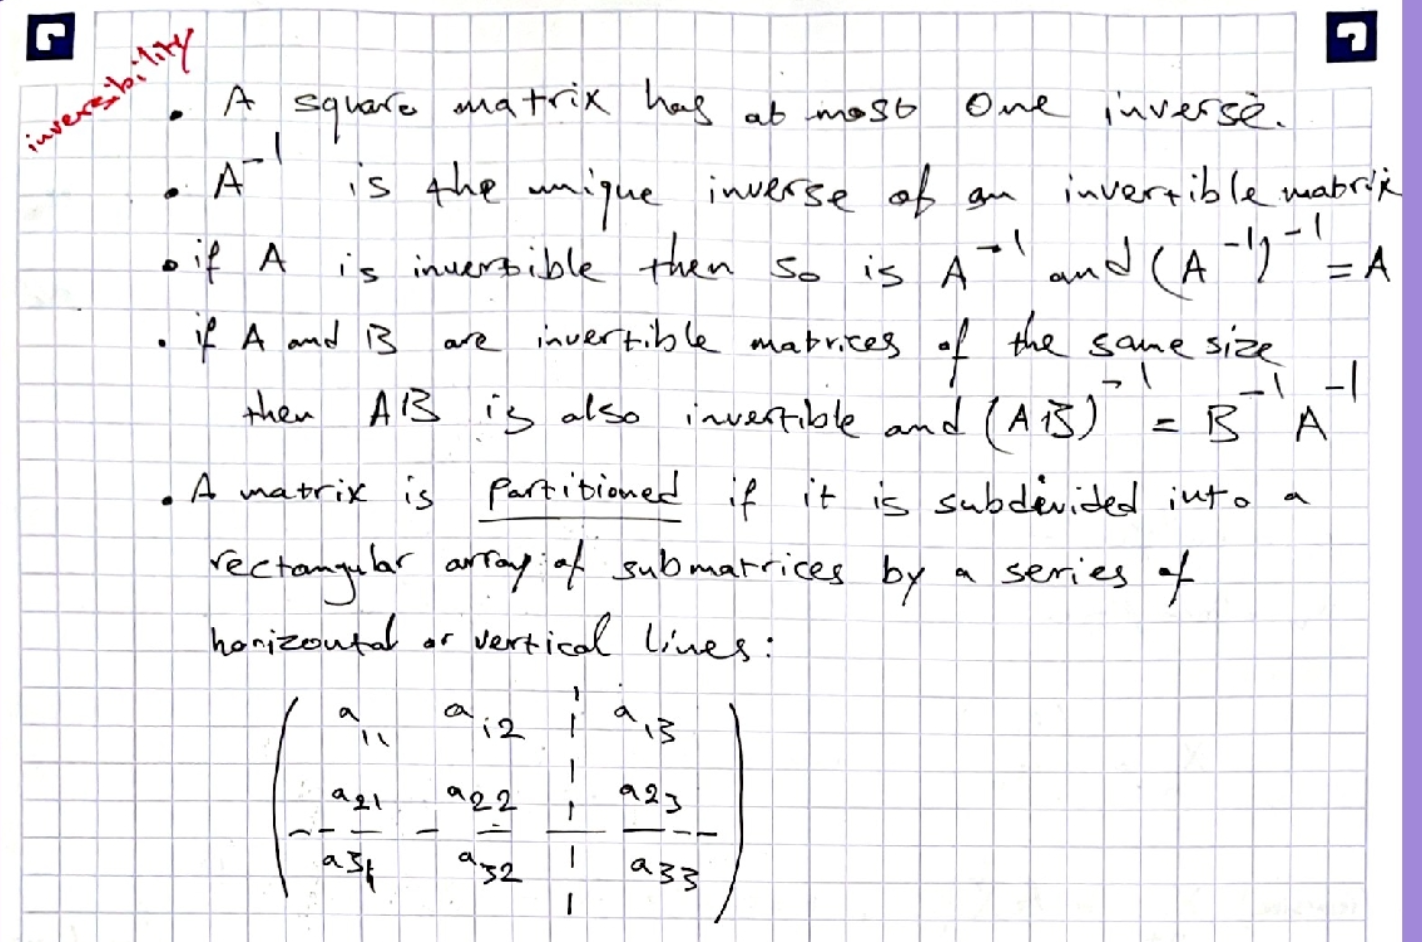 inversibility
• A square matrix has at most one inverse.
• A⁻¹ is the unique inverse of an invertible matrix
• if A is inversible then so is A⁻¹ and (A⁻¹)⁻¹ = A
• if A and B are invertible matrices of the same size
then AB is also invertible and (AB)⁻¹ = B⁻¹ A⁻¹
• A matrix is partitioned if it is subdivided into a
rectangular array of submatrices by a series of
horizontal or vertical lines:
a₁₁ a₁₂ a₁₃
a₂₁ a₂₂ a₂₃
a₃₁ a₃₂ a₃₃